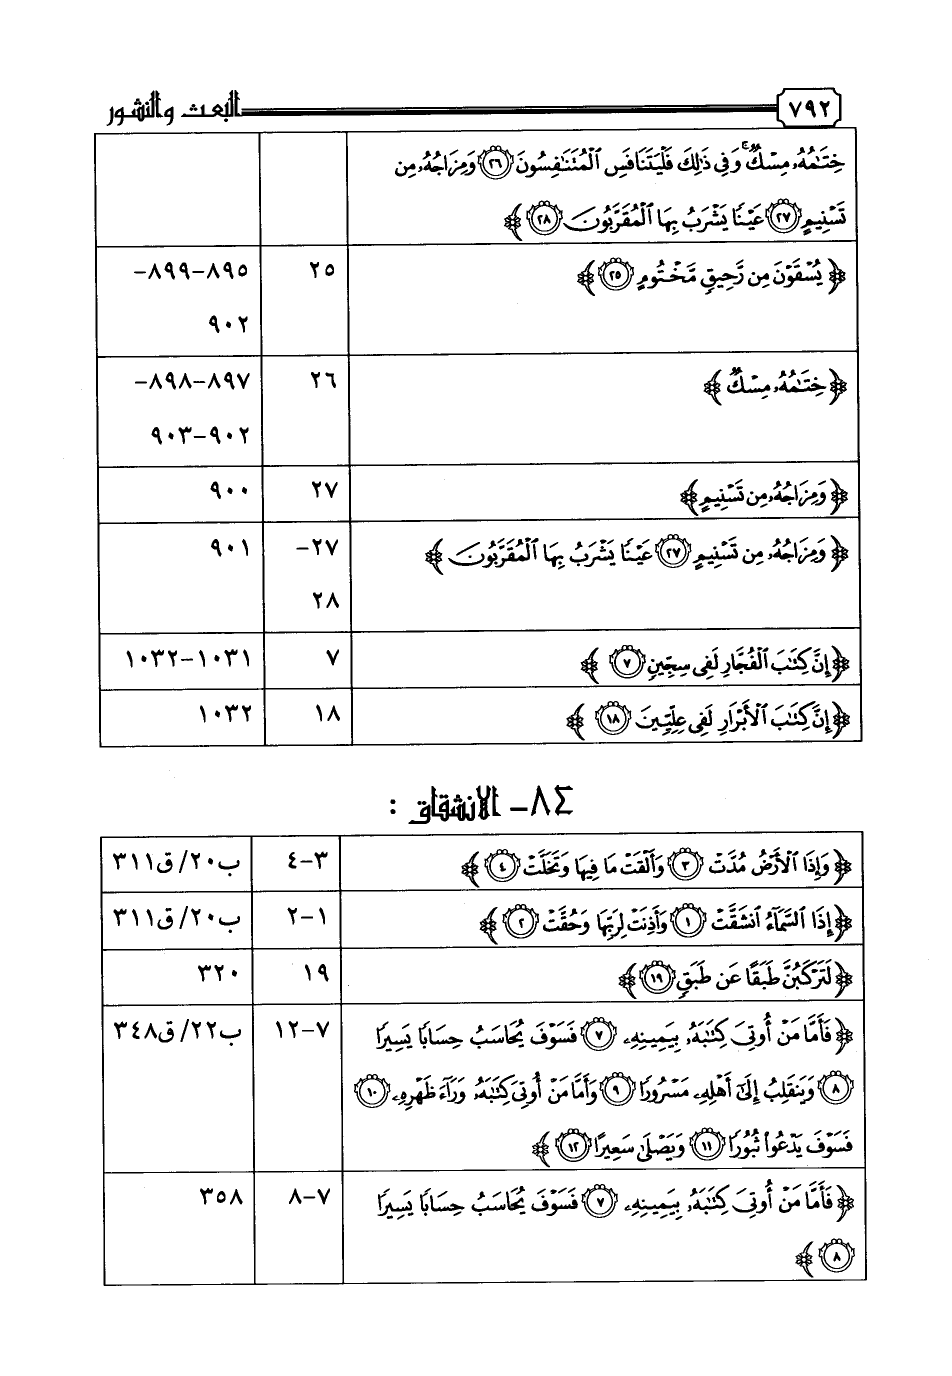 ٧٩٢ البعث والنشور
خِتَامُهُۥ مِسْكٌ ۚ وَفِى ذَٰلِكَ فَلْيَتَنَافَسِ ٱلْمُتَنَافِسُونَ ٢٦ وَمِزَاجُهُۥ مِن
تَسْنِيمٍ ٢٧ عَيْنًا يَشْرَبُ بِهَا ٱلْمُقَرَّبُونَ ٢٨ ﴾
﴿ يُسْقَوْنَ مِن رَّحِيقٍ مَّخْتُومٍ ٢٥ ﴾ ٢٥ ٨٩٥-٨٩٩-
٩٠٢
﴿ خِتَامُهُۥ مِسْكٌ ﴾ ٢٦ ٨٩٧-٨٩٨-
٩٠٢-٩٠٣
﴿ وَمِزَاجُهُۥ مِن تَسْنِيمٍ ﴾ ٢٧ ٩٠٠
﴿ وَمِزَاجُهُۥ مِن تَسْنِيمٍ ٢٧ عَيْنًا يَشْرَبُ بِهَا ٱلْمُقَرَّبُونَ ﴾ ٢٧- ٩٠١
٢٨
﴿ إِنَّ كِتَٰبَ ٱلْفُجَّارِ لَفِى سِجِّينٍ ٧ ﴾ ٧ ١٠٣١-١٠٣٢
﴿ إِنَّ كِتَٰبَ ٱلْأَبْرَارِ لَفِى عِلِّيِّينَ ١٨ ﴾ ١٨ ١٠٣٢
٨٤- الانشقاق :
﴿ وَإِذَا ٱلْأَرْضُ مُدَّتْ ٣ وَأَلْقَتْ مَا فِيهَا وَتَخَلَّتْ ٤ ﴾ ٣-٤ ب٢٠/ق٣١١
﴿ إِذَا ٱلسَّمَآءُ ٱنشَقَّتْ ١ وَأَذِنَتْ لِرَبِّهَا وَحُقَّتْ ٢ ﴾ ١-٢ ب٢٠/ق٣١١
﴿ لَتَرْكَبُنَّ طَبَقًا عَن طَبَقٍ ١٩ ﴾ ١٩ ٣٢٠
﴿ فَأَمَّا مَنْ أُوتِىَ كِتَٰبَهُۥ بِيَمِينِهِۦ ٧ فَسَوْفَ يُحَاسَبُ حِسَابًا يَسِيرًا ٧-١٢ ب٢٢/ق٣٤٨
٨ وَيَنقَلِبُ إِلَىٰٓ أَهْلِهِۦ مَسْرُورًا ٩ وَأَمَّا مَنْ أُوتِىَ كِتَٰبَهُۥ وَرَآءَ ظَهْرِهِۦ ١٠
فَسَوْفَ يَدْعُوا۟ ثُبُورًا ١١ وَيَصْلَىٰ سَعِيرًا ١٢ ﴾
﴿ فَأَمَّا مَنْ أُوتِىَ كِتَٰبَهُۥ بِيَمِينِهِۦ ٧ فَسَوْفَ يُحَاسَبُ حِسَابًا يَسِيرًا ٧-٨ ٣٥٨
٨ ﴾